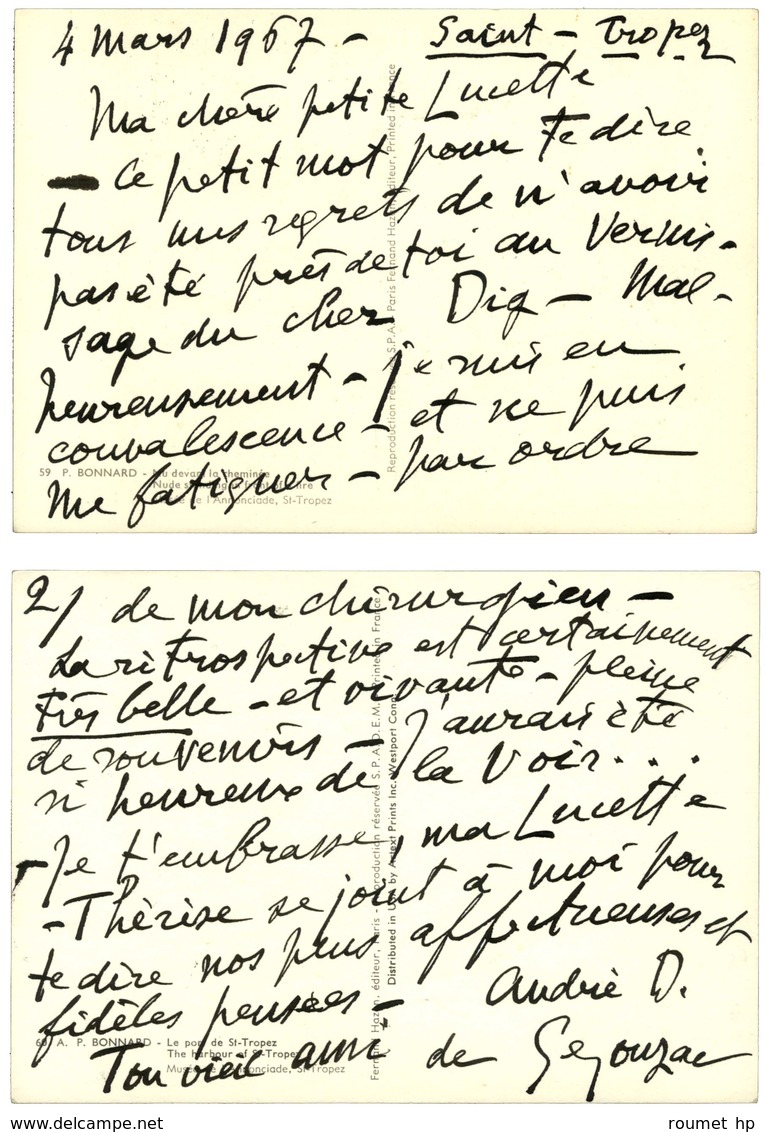 4 mars 1967 - Saint - Tropez
Ma chère petite Lucette
Ce petit mot pour te dire
tous mes regrets de n'avoir
pas été près de toi au Vernis-
sage du cher Dig - Mal-
heureusement - je suis en
convalescence - et ne puis
me fatiguer - par ordre
59 P. BONNARD - Nu devant la cheminée
Nude standing in front of a fire
Musée de l'Annonciade, St-Tropez
Reproduction réservée S.P.A.D.E.M. Paris Fernand Hazan, éditeur, Printed in France
2/ de mon chirurgien -
La rétrospective est certainement
très belle - et vivante - pleine
de souvenirs - J'aurais été
si heureux de la Voir...
- Je t'embrasse, ma Lucette
- Thérèse se joint à moi pour
te dire nos plus affectueuses et
fidèles pensées -
Ton vieil ami
André D.
de Segonzac
60 A. P. BONNARD - Le port de St-Tropez
The harbour of St-Tropez
Musée de l'Annonciade, St-Tropez
Fernand Hazan, éditeur, Paris - Reproduction réservée S.P.A.D.E.M. Printed in France
Distributed in USA by Artext Prints Inc. Westport Conn
roumet hp